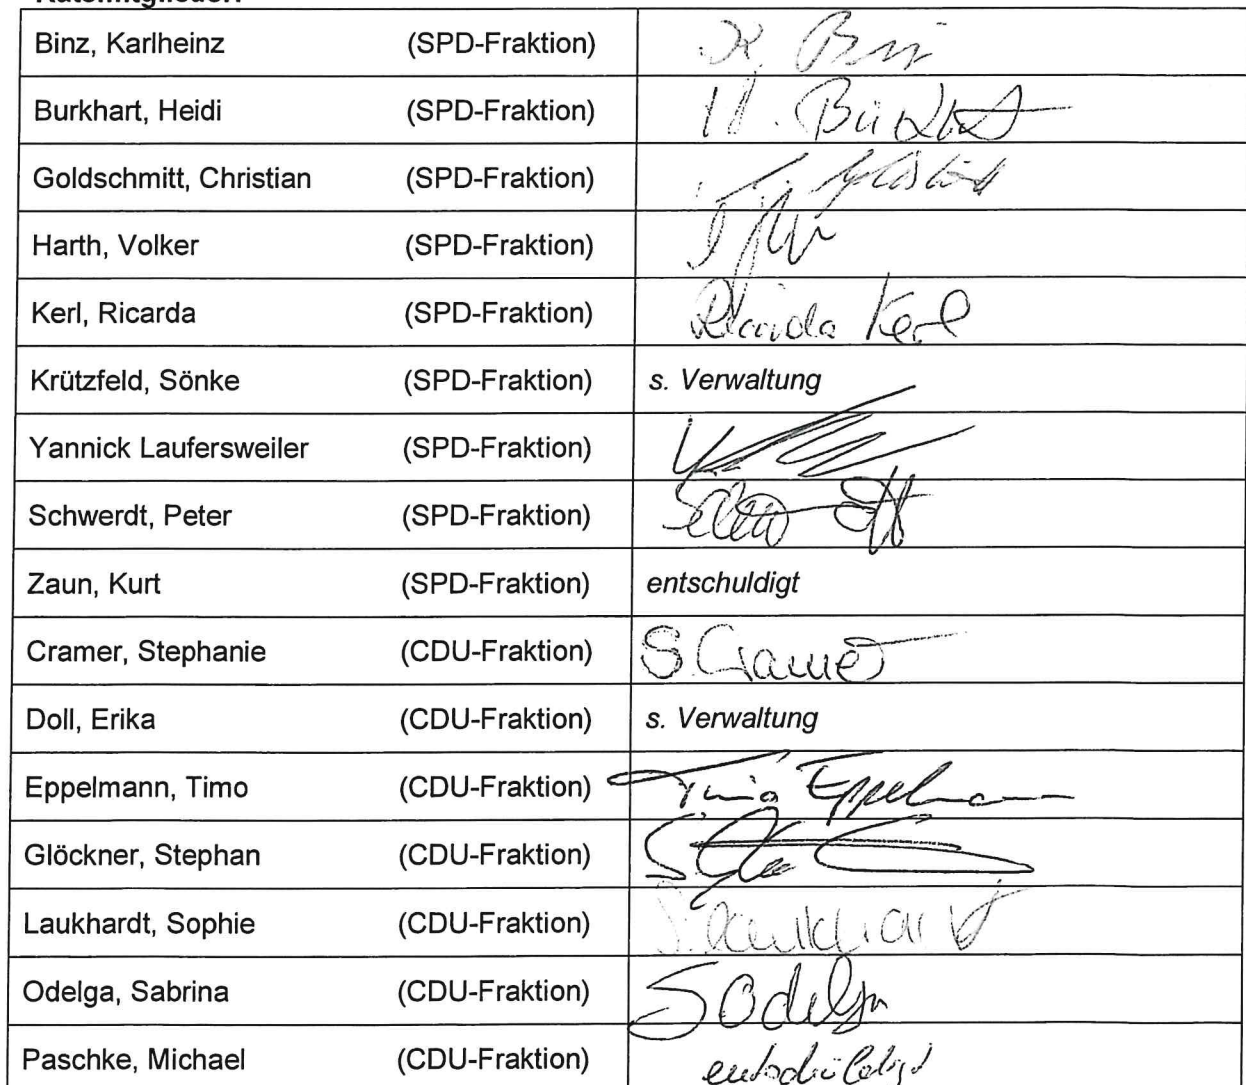 Ratsmitglieder:
Binz, Karlheinz (SPD-Fraktion) K. Binz
Burkhart, Heidi (SPD-Fraktion) H. Burkhart
Goldschmitt, Christian (SPD-Fraktion)
Harth, Volker (SPD-Fraktion)
Kerl, Ricarda (SPD-Fraktion) Ricarda Kerl
Krützfeld, Sönke (SPD-Fraktion) s. Verwaltung
Yannick Laufersweiler (SPD-Fraktion)
Schwerdt, Peter (SPD-Fraktion)
Zaun, Kurt (SPD-Fraktion) entschuldigt
Cramer, Stephanie (CDU-Fraktion) S. Cramer
Doll, Erika (CDU-Fraktion) s. Verwaltung
Eppelmann, Timo (CDU-Fraktion) Timo Eppelmann
Glöckner, Stephan (CDU-Fraktion)
Laukhardt, Sophie (CDU-Fraktion) S. Laukhardt
Odelga, Sabrina (CDU-Fraktion) S Odelga
Paschke, Michael (CDU-Fraktion) entschuldigt